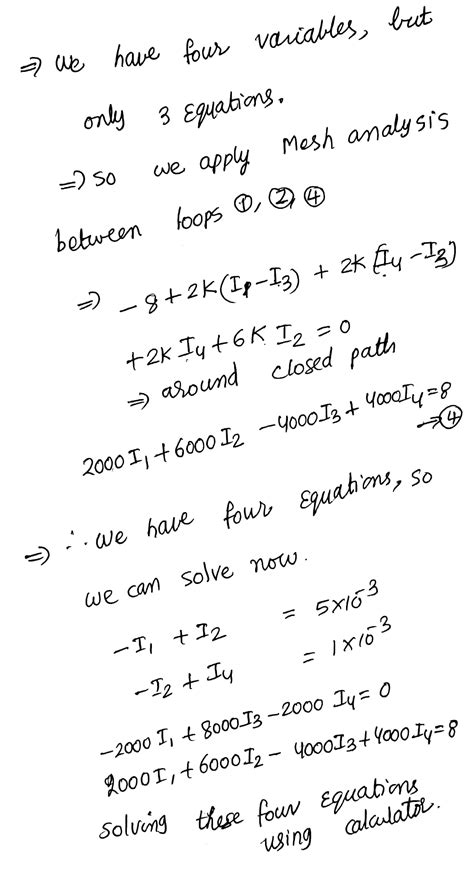 ⇒ we have four variables, but
only 3 Equations.
⇒ so we apply Mesh analysis
between loops ①, ②, ④
⇒ -8+2K(I1-I3) + 2K[I4-I3]
+2K I4+6K I2 = 0
⇒ around closed path
2000I1+6000I2 -4000I3+4000I4=8
→④
⇒ ∴ we have four Equations, so
we can solve now.
-I1 + I2 = 5×10^-3
-I2 + I4 = 1×10^-3
-2000 I1 + 8000I3-2000 I4=0
2000I1+6000I2- 4000I3+4000I4=8
solving these four Equations
using calculator.